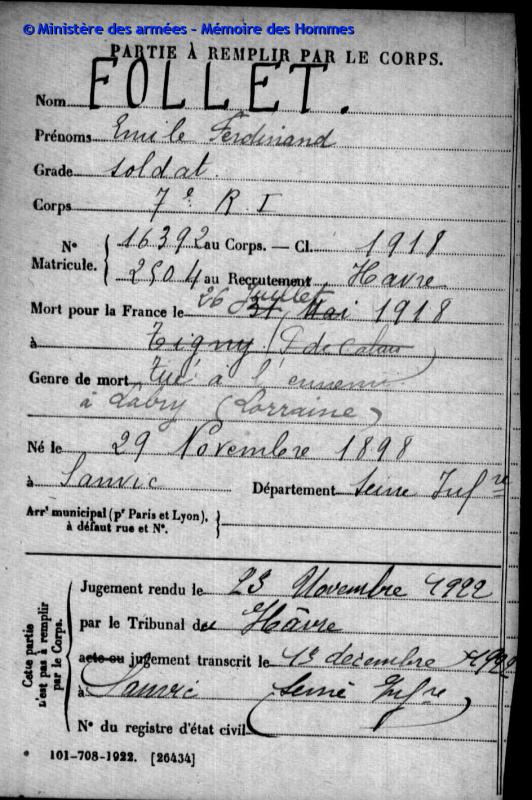 © Ministère des armées - Mémoire des Hommes
PARTIE À REMPLIR PAR LE CORPS.
Nom FOLLET.
Prénoms Emile Ferdinand
Grade soldat.
Corps 7e R I
N° Matricule. { 16392 au Corps. — Cl. 1918
2504 au Recrutement Havre
26 juillet
Mort pour la France le 31 Mai 1918
à Tigny (P de Calais)
Genre de mort Tué à l'ennemi
à Labry (Lorraine)
Né le 29 Novembre 1898
à Sanvic Département Seine Infre
Arrt municipal (pr Paris et Lyon),
à défaut rue et N°.
Cette partie n'est pas à remplir par le Corps.
Jugement rendu le 23 Novembre 1922
par le Tribunal du Hâvre
acte ou jugement transcrit le décembre 192
à Sanvic Seine Infre
N° du registre d'état civil
101-708-1922. [26434]